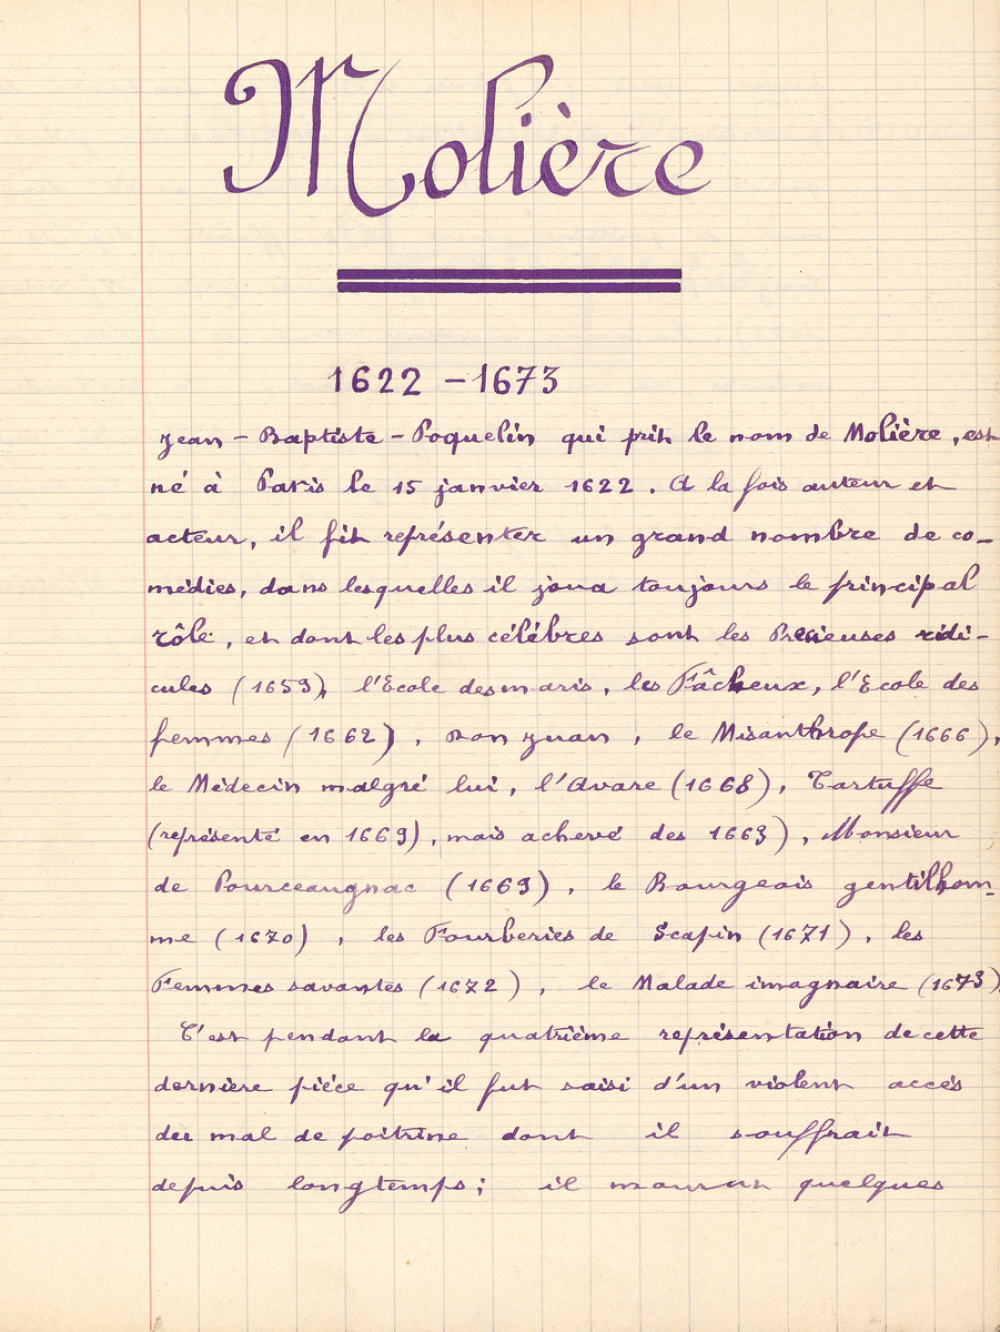 Molière
1622 - 1673
Jean - Baptiste - Poquelin qui prit le nom de Molière, est
né à Paris le 15 janvier 1622. A la fois auteur et
acteur, il fit représenter un grand nombre de co-
médies, dans lesquelles il joua toujours le principal
rôle, et dont les plus célèbres sont les Précieuses ridi-
cules (1659), l'Ecole des maris, les Fâcheux, l'Ecole des
femmes (1662), Don Juan, le Misanthrope (1666),
le Médecin malgré lui, l'Avare (1668), Tartuffe
(représenté en 1669), mais achevé des 1663), Monsieur
de Pourceaugnac (1669), le Bourgeois gentilhom-
me (1670), les Fourberies de Scapin (1671), les
Femmes savantes (1672), le Malade imagnaire (1673)
C'est pendant la quatrième représentation de cette
dernière pièce qu'il fut saisi d'un violent accès
du mal de poitrine dont il souffrait
depuis longtemps; il mourut quelques